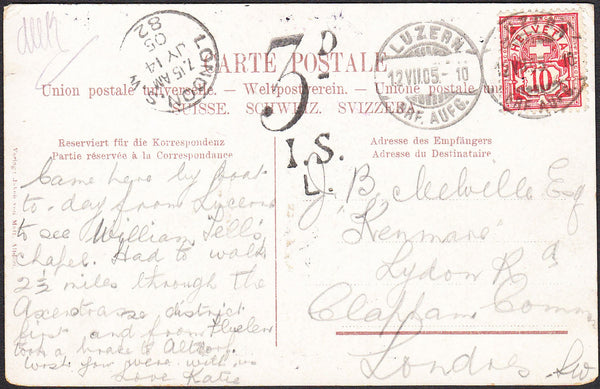 CARTE POSTALE
Union postale universelle. — Weltpostverein. — Unione postale uni
SUISSE. SCHWEIZ. SVIZZERA.
LONDON. S.W
7.15 AM
JY 14
05
82
3D
I.S.
L.
LUZERN
12 VII 05 - 10
BRF. AUFG.
HELVETIA
10
Reserviert für die Korrespondenz
Partie réservée à la Correspondance
Adresse des Empfängers
Adresse du Destinataire
Came here by boat
to-day from Lucerne
to see William Tell's
chapel. Had to walk
2½ miles through the
Axenstrasse district
first and from Fluelen
took a to Altdorf
wish you were with us
Love Katie
J. B. Melville Esq
"Kenmare"
Lydon Rd
Clapham Common
Londres SW